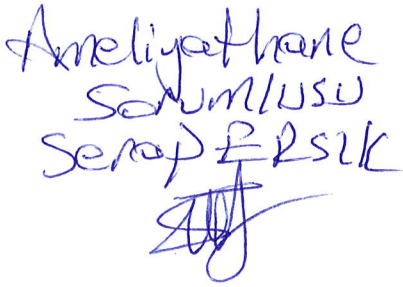 Ameliyathane
Sorumlusu
Serap ERSIK